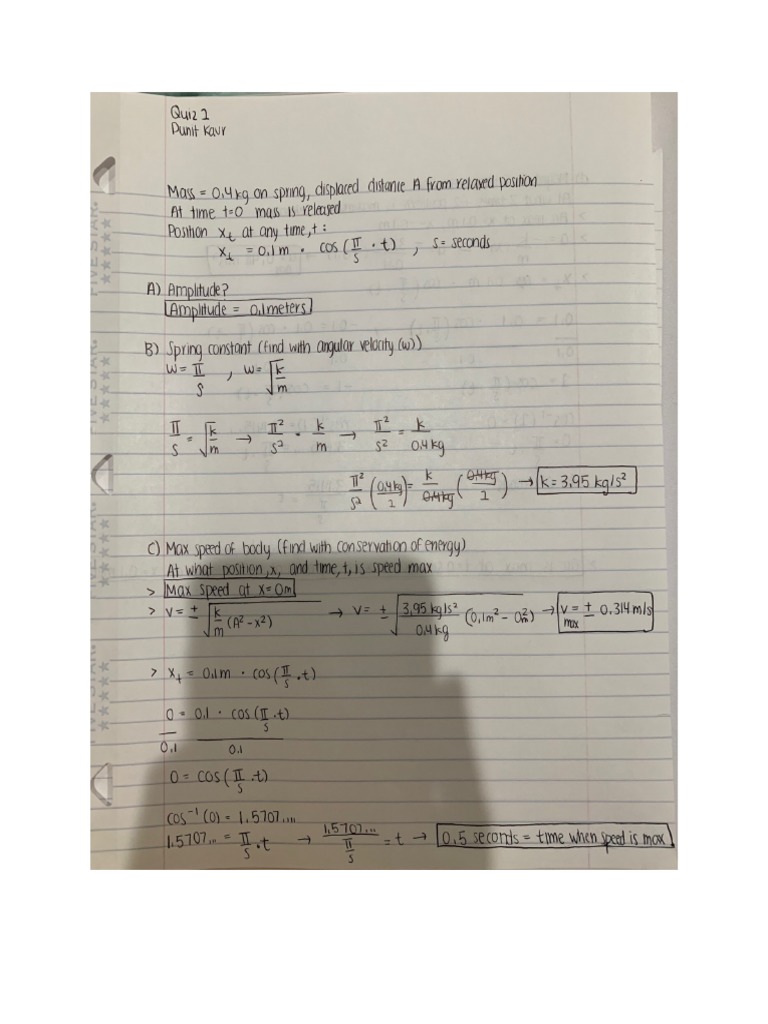 Quiz 1
Punit Kaur
Mass = 0.4kg on spring, displaced distance A from relaxed position
At time t=0 mass is released
Position x_t at any time, t:
x_t = 0.1m · cos(π/s · t) , s = seconds
A) Amplitude?
Amplitude = 0.1meters
B) Spring constant (find with angular velocity (w))
w = π/s , w = √(k/m)
π/s = √(k/m) → π²/s² = k/m → π²/s² = k/0.4kg
π²/s² (0.4kg/1) = k/0.4kg (0.4kg/1) → k = 3.95 kg/s²
C) Max speed of body (find with conservation of energy)
At what position, x, and time, t, is speed max
> Max speed at x=0m
> v = ± √(k/m (A² - x²)) → v = ± √(3.95 kg/s² / 0.4kg (0.1m² - 0m²)) → v max = ± 0.314 m/s
> x_t = 0.1m · cos(π/s · t)
0 = 0.1 · cos(π/s · t)
0.1 0.1
0 = cos(π/s · t)
cos⁻¹(0) = 1.5707...
1.5707... = π/s · t → 1.5707... / π/s = t → 0.5 seconds = time when speed is max
FIVE STAR.
FIVE STAR.